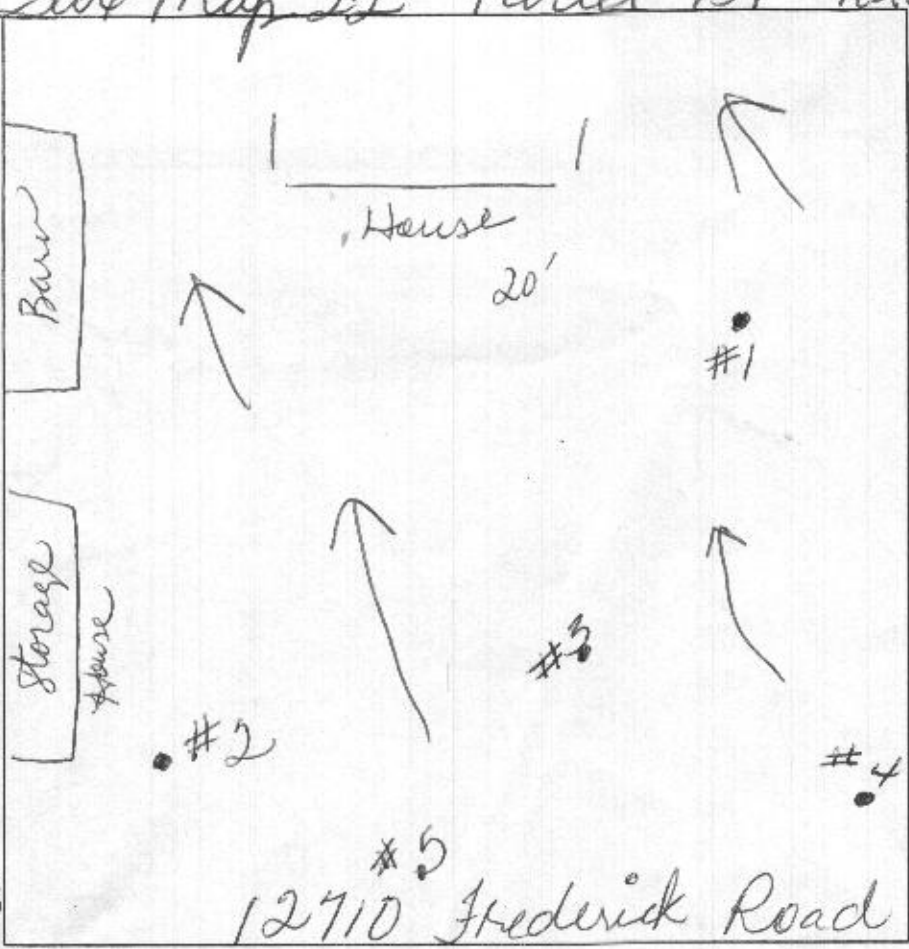 Map 22 Parcel
House
Barn
20'
#1
Storage
House
#3
#2
#4
#5
12710 Frederick Road